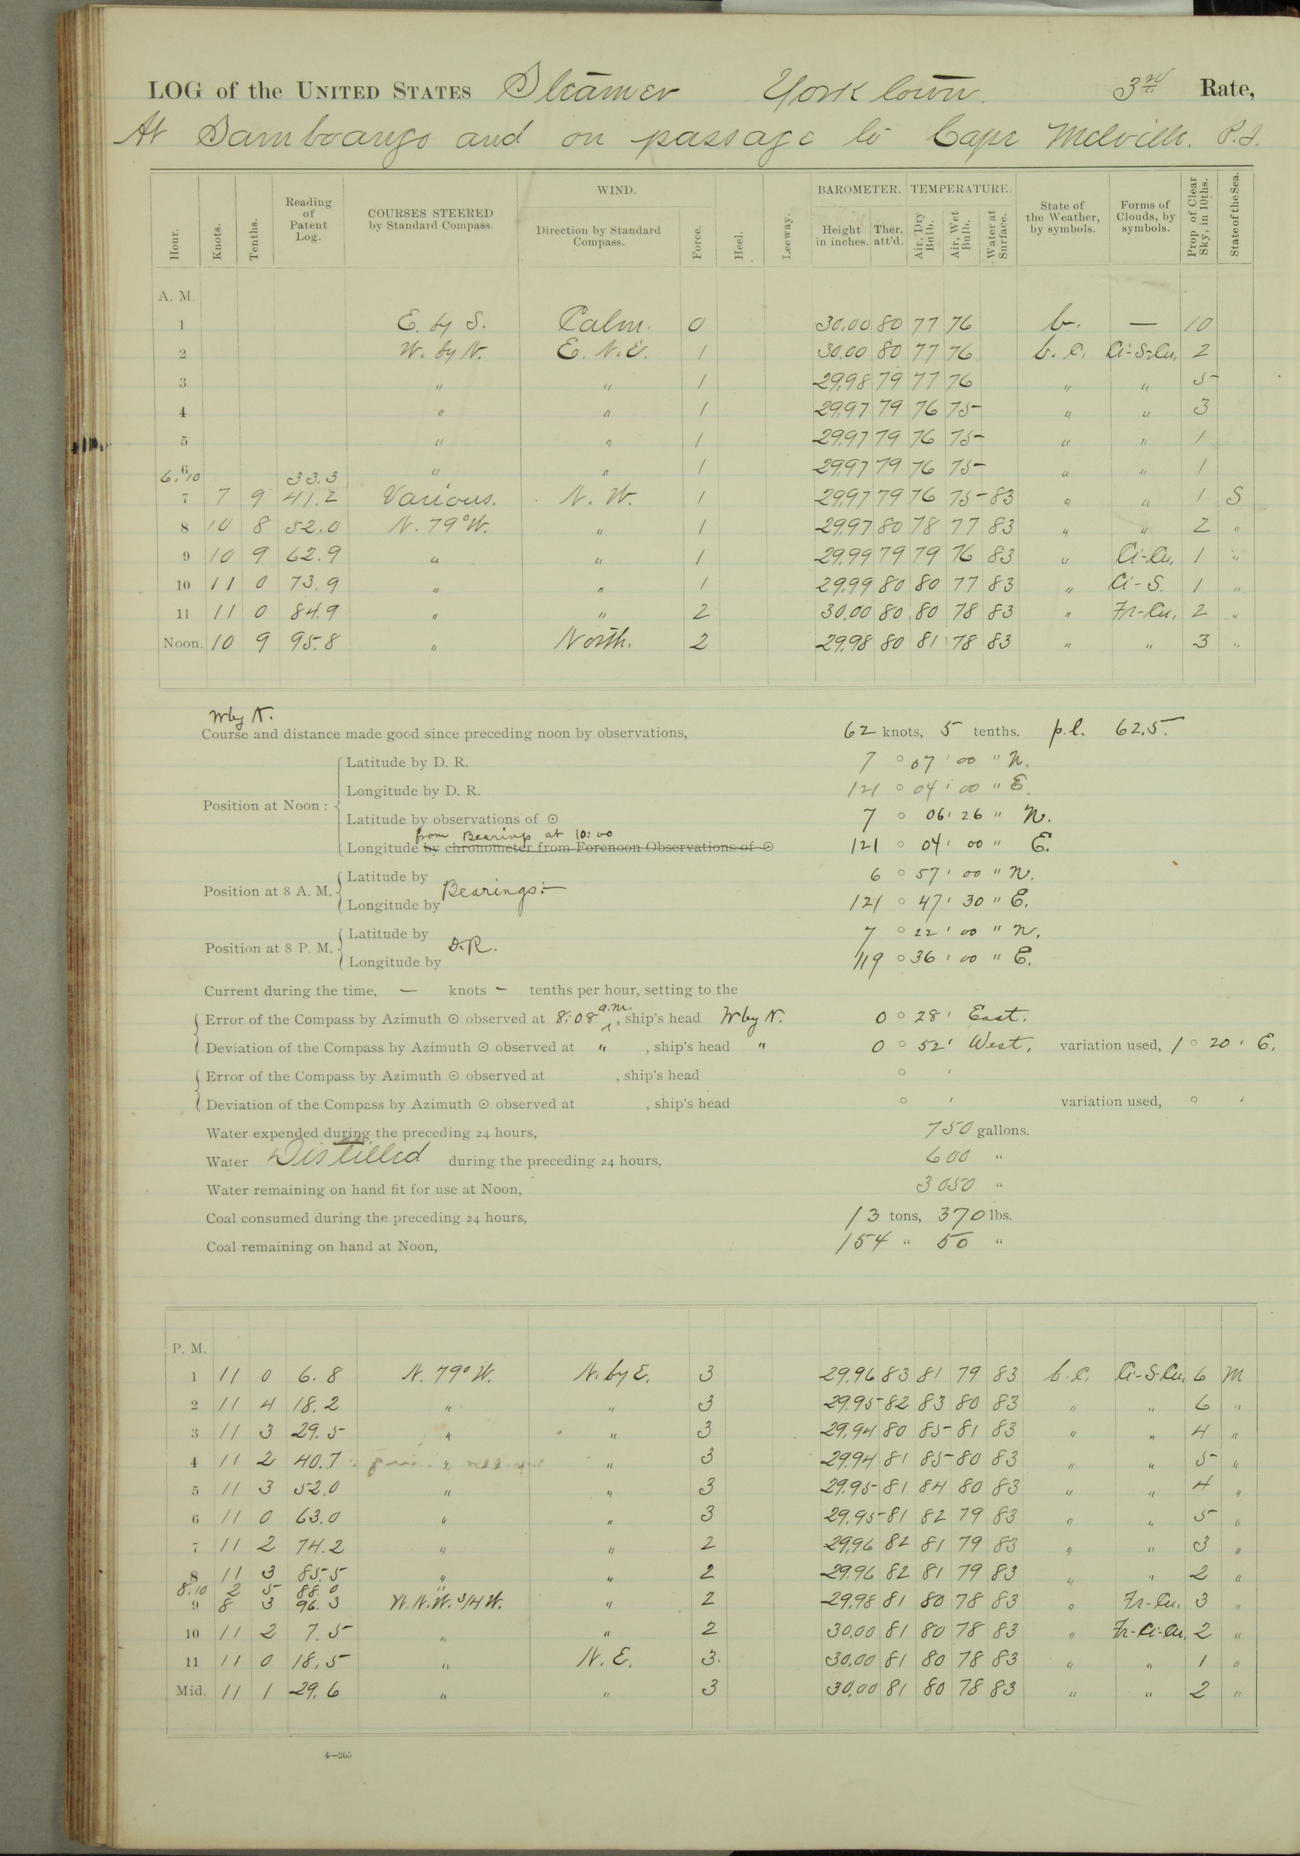 LOG of the UNITED STATES Steamer Yorktown. 3rd Rate,
At Samboango and on passage to Cape Melville. P.I.
Hour. Knots. Tenths. Reading of Patent Log. COURSES STEERED by Standard Compass. WIND. Direction by Standard Compass. Force. Heel. Leeway. BAROMETER. Height in inches. Ther. att'd. TEMPERATURE. Air, Dry Bulb. Air, Wet Bulb. Water at Surface. State of the Weather, by symbols. Forms of Clouds, by symbols. Prop. of Clear Sky, in 10ths. State of the Sea.
A. M.
1 E. by S. Calm. 0 30.00 80 77 76 b. — 10
2 W. by N. E. N. E. 1 30.00 80 77 76 b. c. Ci-S-Cu. 2
3 " " 1 29.98 79 77 76 " " 5
4 " " 1 29.97 79 76 75 " " 3
5 " " 1 29.97 79 76 75 " " 1
6 " " 1 29.97 79 76 75 " " 1
6.10 33.3
7 7 9 41.2 Various. N. W. 1 29.97 79 76 75 83 " " 1 S
8 10 8 52.0 N. 79° W. " 1 29.97 80 78 77 83 " " 2 "
9 10 9 62.9 " " 1 29.99 79 79 76 83 " Ci-Cu. 1 "
10 11 0 73.9 " " 1 29.99 80 80 77 83 " Ci-S. 1 "
11 11 0 84.9 " " 2 30.00 80 80 78 83 " Fr-Cu. 2 "
Noon. 10 9 95.8 " North. 2 29.98 80 81 78 83 " " 3 "
W by N.
Course and distance made good since preceding noon by observations, 62 knots, 5 tenths. p.l. 62.5.
Position at Noon:
Latitude by D. R. 7 ° 07 ' 00 " N.
Longitude by D. R. 121 ° 04 ' 00 " E.
Latitude by observations of ☉ 7 ° 06 ' 26 " N.
from Bearings at 10:00
Longitude by chronometer from Forenoon Observations of ☉ 121 ° 04 ' 00 " E.
Position at 8 A. M. Latitude by Bearings:— 6 ° 57 ' 00 " N.
Longitude by 121 ° 47 ' 30 " E.
Position at 8 P. M. Latitude by D.R. 7 ° 22 ' 00 " N.
Longitude by 119 ° 36 ' 00 " E.
Current during the time, — knots — tenths per hour, setting to the
Error of the Compass by Azimuth ☉ observed at 8:08 a.m., ship's head W by N. 0 ° 28 ' East.
Deviation of the Compass by Azimuth ☉ observed at " , ship's head " 0 ° 52 ' West, variation used, 1 ° 20 ' E.
Error of the Compass by Azimuth ☉ observed at , ship's head ° '
Deviation of the Compass by Azimuth ☉ observed at , ship's head ° ' variation used, ° '
Water expended during the preceding 24 hours, 750 gallons.
Water Distilled during the preceding 24 hours, 600 "
Water remaining on hand fit for use at Noon, 3050 "
Coal consumed during the preceding 24 hours, 13 tons, 370 lbs.
Coal remaining on hand at Noon, 154 " 50 "
P. M.
1 11 0 6.8 N. 79° W. N. by E. 3 29.96 83 81 79 83 b. c. Ci-S-Cu. 6 M
2 11 4 18.2 " " 3 29.95 82 83 80 83 " " 6 "
3 11 3 29.5 " " 3 29.94 80 85 81 83 " " 4 "
4 11 2 40.7 " " 3 29.94 81 85 80 83 " " 5 "
5 11 3 52.0 " " 3 29.95 81 84 80 83 " " 4 "
6 11 0 63.0 " " 3 29.95 81 82 79 83 " " 5 "
7 11 2 74.2 " " 2 29.96 82 81 79 83 " " 3 "
8 11 3 85.5 " " 2 29.96 82 81 79 83 " " 2 "
8.10 2 5 88.0 "
9 8 3 96.3 W.N.W. 3/4 W. " 2 29.98 81 80 78 83 " Fr-Cu. 3 "
10 11 2 7.5 " " 2 30.00 81 80 78 83 " Fr-Ci-Cu. 2 "
11 11 0 18.5 " N. E. 3 30.00 81 80 78 83 " " 1 "
Mid. 11 1 29.6 " " 3 30.00 81 80 78 83 " " 2 "
4—265